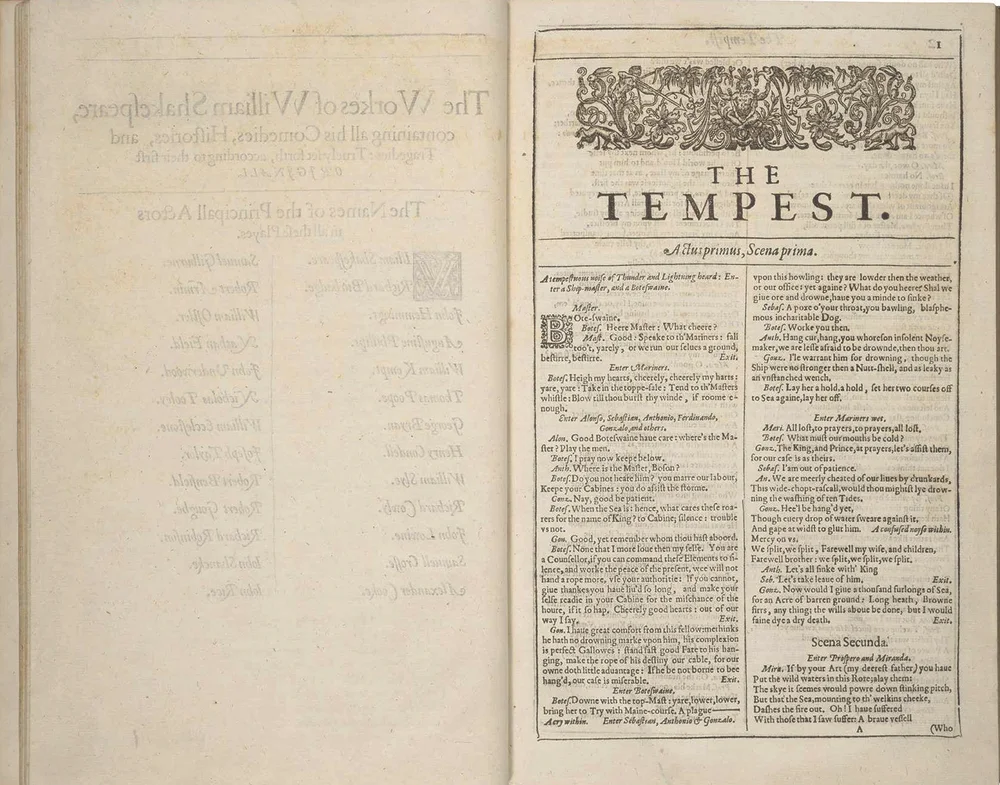 The Workes of William Shakeſpeare,
containing all his Comedies, Hiſtories, and
Tragedies: Truely ſet forth, according to their firſt
ORJGJNALL.
The Names of the Principall Actors
in all theſe Playes.
William Shakeſpeare.
Richard Burbadge.
John Hemmings.
Auguſtine Phillips.
William Kempt.
Thomas Poope.
George Bryan.
Henry Condell.
William Slye.
Richard Cowly.
John Lowine.
Samuell Croſſe.
Alexander Cooke.
Samuel Gilburne.
Robert Armin.
William Oſtler.
Nathan Field.
John Underwood.
Nicholas Tooley.
William Eccleſtone.
Joſeph Taylor.
Robert Benfield.
Robert Goughe.
Richard Robinſon.
John Shancke.
John Rice.
1
THE
TEMPEST.
Actus primus, Scena prima.
A tempeſtuous noiſe of Thunder and Lightning heard: En-
ter a Ship-maſter, and a Boteſwaine.
Maſter.
BOte-ſwaine.
Boteſ. Heere Maſter: What cheere?
Maſt. Good: Speake to th'Mariners: fall
too't, yarely, or we run our ſelues a ground,
beſtirre, beſtirre. Exit.
Enter Mariners.
Boteſ. Heigh my hearts, cheerely, cheerely my harts:
yare, yare: Take in the toppe-ſale: Tend to th'Maſters
whiſtle: Blow till thou burſt thy winde, if roome e-
nough.
Enter Alonſo, Sebaſtian, Anthonio, Ferdinando,
Gonzalo, and others.
Alon. Good Boteſwaine haue care: where's the Ma-
ſter? Play the men.
Boteſ. I pray now keepe below.
Anth. Where is the Maſter, Boſon?
Boteſ. Do you not heare him? you marre our labour,
Keepe your Cabines: you do aſſiſt the ſtorme.
Gonz. Nay, good be patient.
Boteſ. When the Sea is: hence, what cares theſe roa-
rers for the name of King? to Cabine; ſilence: trouble
vs not.
Gon. Good, yet remember whom thou haſt aboord.
Boteſ. None that I more loue then my ſelfe. You are
a Counſellor, if you can command theſe Elements to ſi-
lence, and worke the peace of the preſent, wee will not
hand a rope more, vſe your authoritie: If you cannot,
giue thankes you haue liu'd ſo long, and make your
ſelfe readie in your Cabine for the miſchance of the
houre, if it ſo hap. Cheerely good hearts: out of our
way I ſay. Exit.
Gon. I haue great comfort from this fellow: methinks
he hath no drowning marke vpon him, his complexion
is perfect Gallowes: ſtand faſt good Fate to his han-
ging, make the rope of his deſtiny our cable, for our
owne doth little aduantage: If he be not borne to bee
hang'd, our caſe is miſerable. Exit.
Enter Boteſwaine.
Boteſ. Downe with the top-Maſt: yare, lower, lower,
bring her to Try with Maine-courſe. A plague——
A cry within. Enter Sebaſtian, Anthonio & Gonzalo.
vpon this howling: they are lowder then the weather,
or our office: yet againe? What do you heere? Shal we
giue ore and drowne, haue you a minde to ſinke?
Sebaſ. A poxe o'your throat, you bawling, blaſphe-
mous incharitable Dog.
Boteſ. Worke you then.
Anth. Hang cur, hang, you whoreſon inſolent Noyſe-
maker, we are leſſe afraid to be drownde, then thou art.
Gonz. I'le warrant him for drowning, though the
Ship were no ſtronger then a Nutt-ſhell, and as leaky as
an vnſtanched wench.
Boteſ. Lay her a hold, a hold, ſet her two courſes off
to Sea againe, lay her off.
Enter Mariners wet.
Mari. All loſt, to prayers, to prayers, all loſt.
Boteſ. What muſt our mouths be cold?
Gonz. The King, and Prince, at prayers, let's aſſiſt them,
for our caſe is as theirs.
Sebaſ. I'am out of patience.
An. We are meerly cheated of our liues by drunkards,
This wide-chopt-raſcall, would thou mightſt lye drow-
ning the waſhing of ten Tides.
Gonz. Hee'l be hang'd yet,
Though euery drop of water ſweare againſt it,
And gape at widſt to glut him. A confuſed noyſe within.
Mercy on vs.
We ſplit, we ſplit, Farewell my wife, and children,
Farewell brother: we ſplit, we ſplit, we ſplit.
Anth. Let's all ſinke with' King
Seb. Let's take leaue of him. Exit.
Gonz. Now would I giue a thouſand furlongs of Sea,
for an Acre of barren ground: Long heath, Browne
firrs, any thing; the wills aboue be done, but I would
faine dye a dry death. Exit.
Scena Secunda.
Enter Proſpero and Miranda.
Mira. If by your Art (my deereſt father) you haue
Put the wild waters in this Rore; alay them:
The skye it ſeemes would powre down ſtinking pitch,
But that the Sea, mounting to th' welkins cheeke,
Daſhes the fire out. Oh! I haue ſuffered
With thoſe that I ſaw ſuffer: A braue veſſell
A (Who